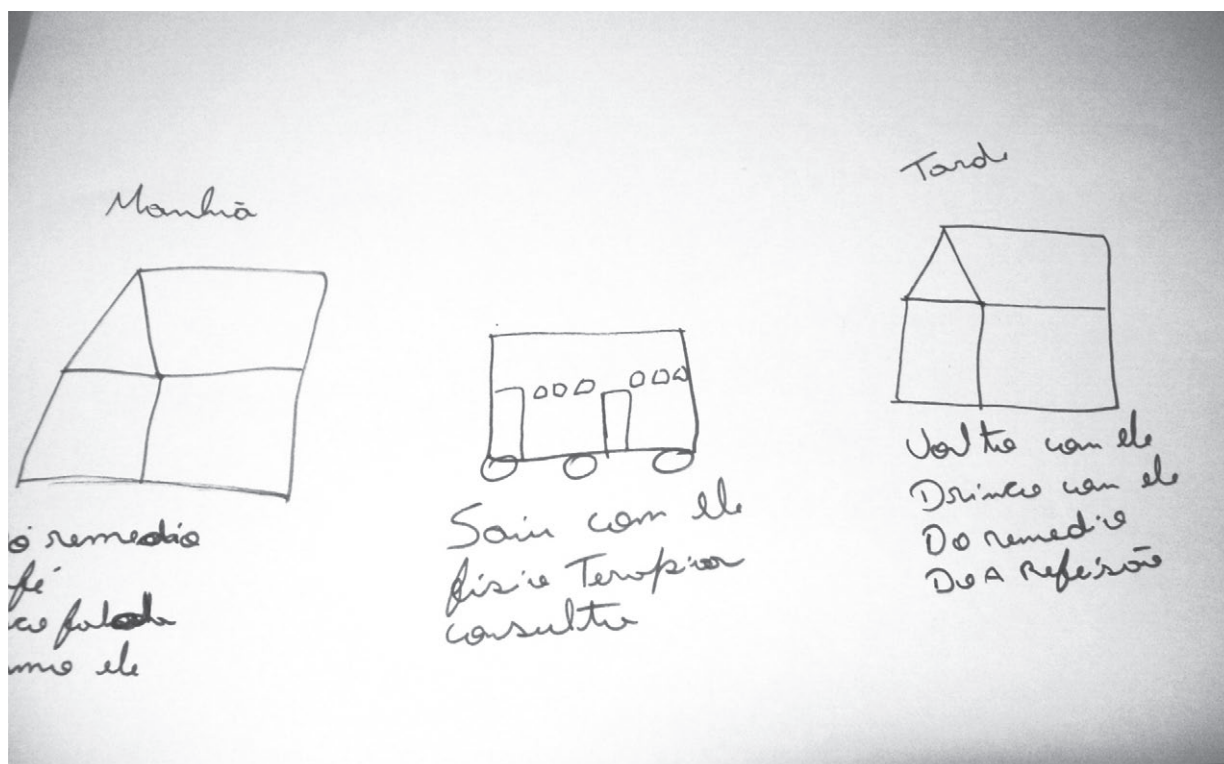 Manhã
remedio
fé
ele
Sair com ele
fisio Terapia
consulta
Tarde
Volto com ele
Brinco com ele
Do remedio
Do A Refeisão